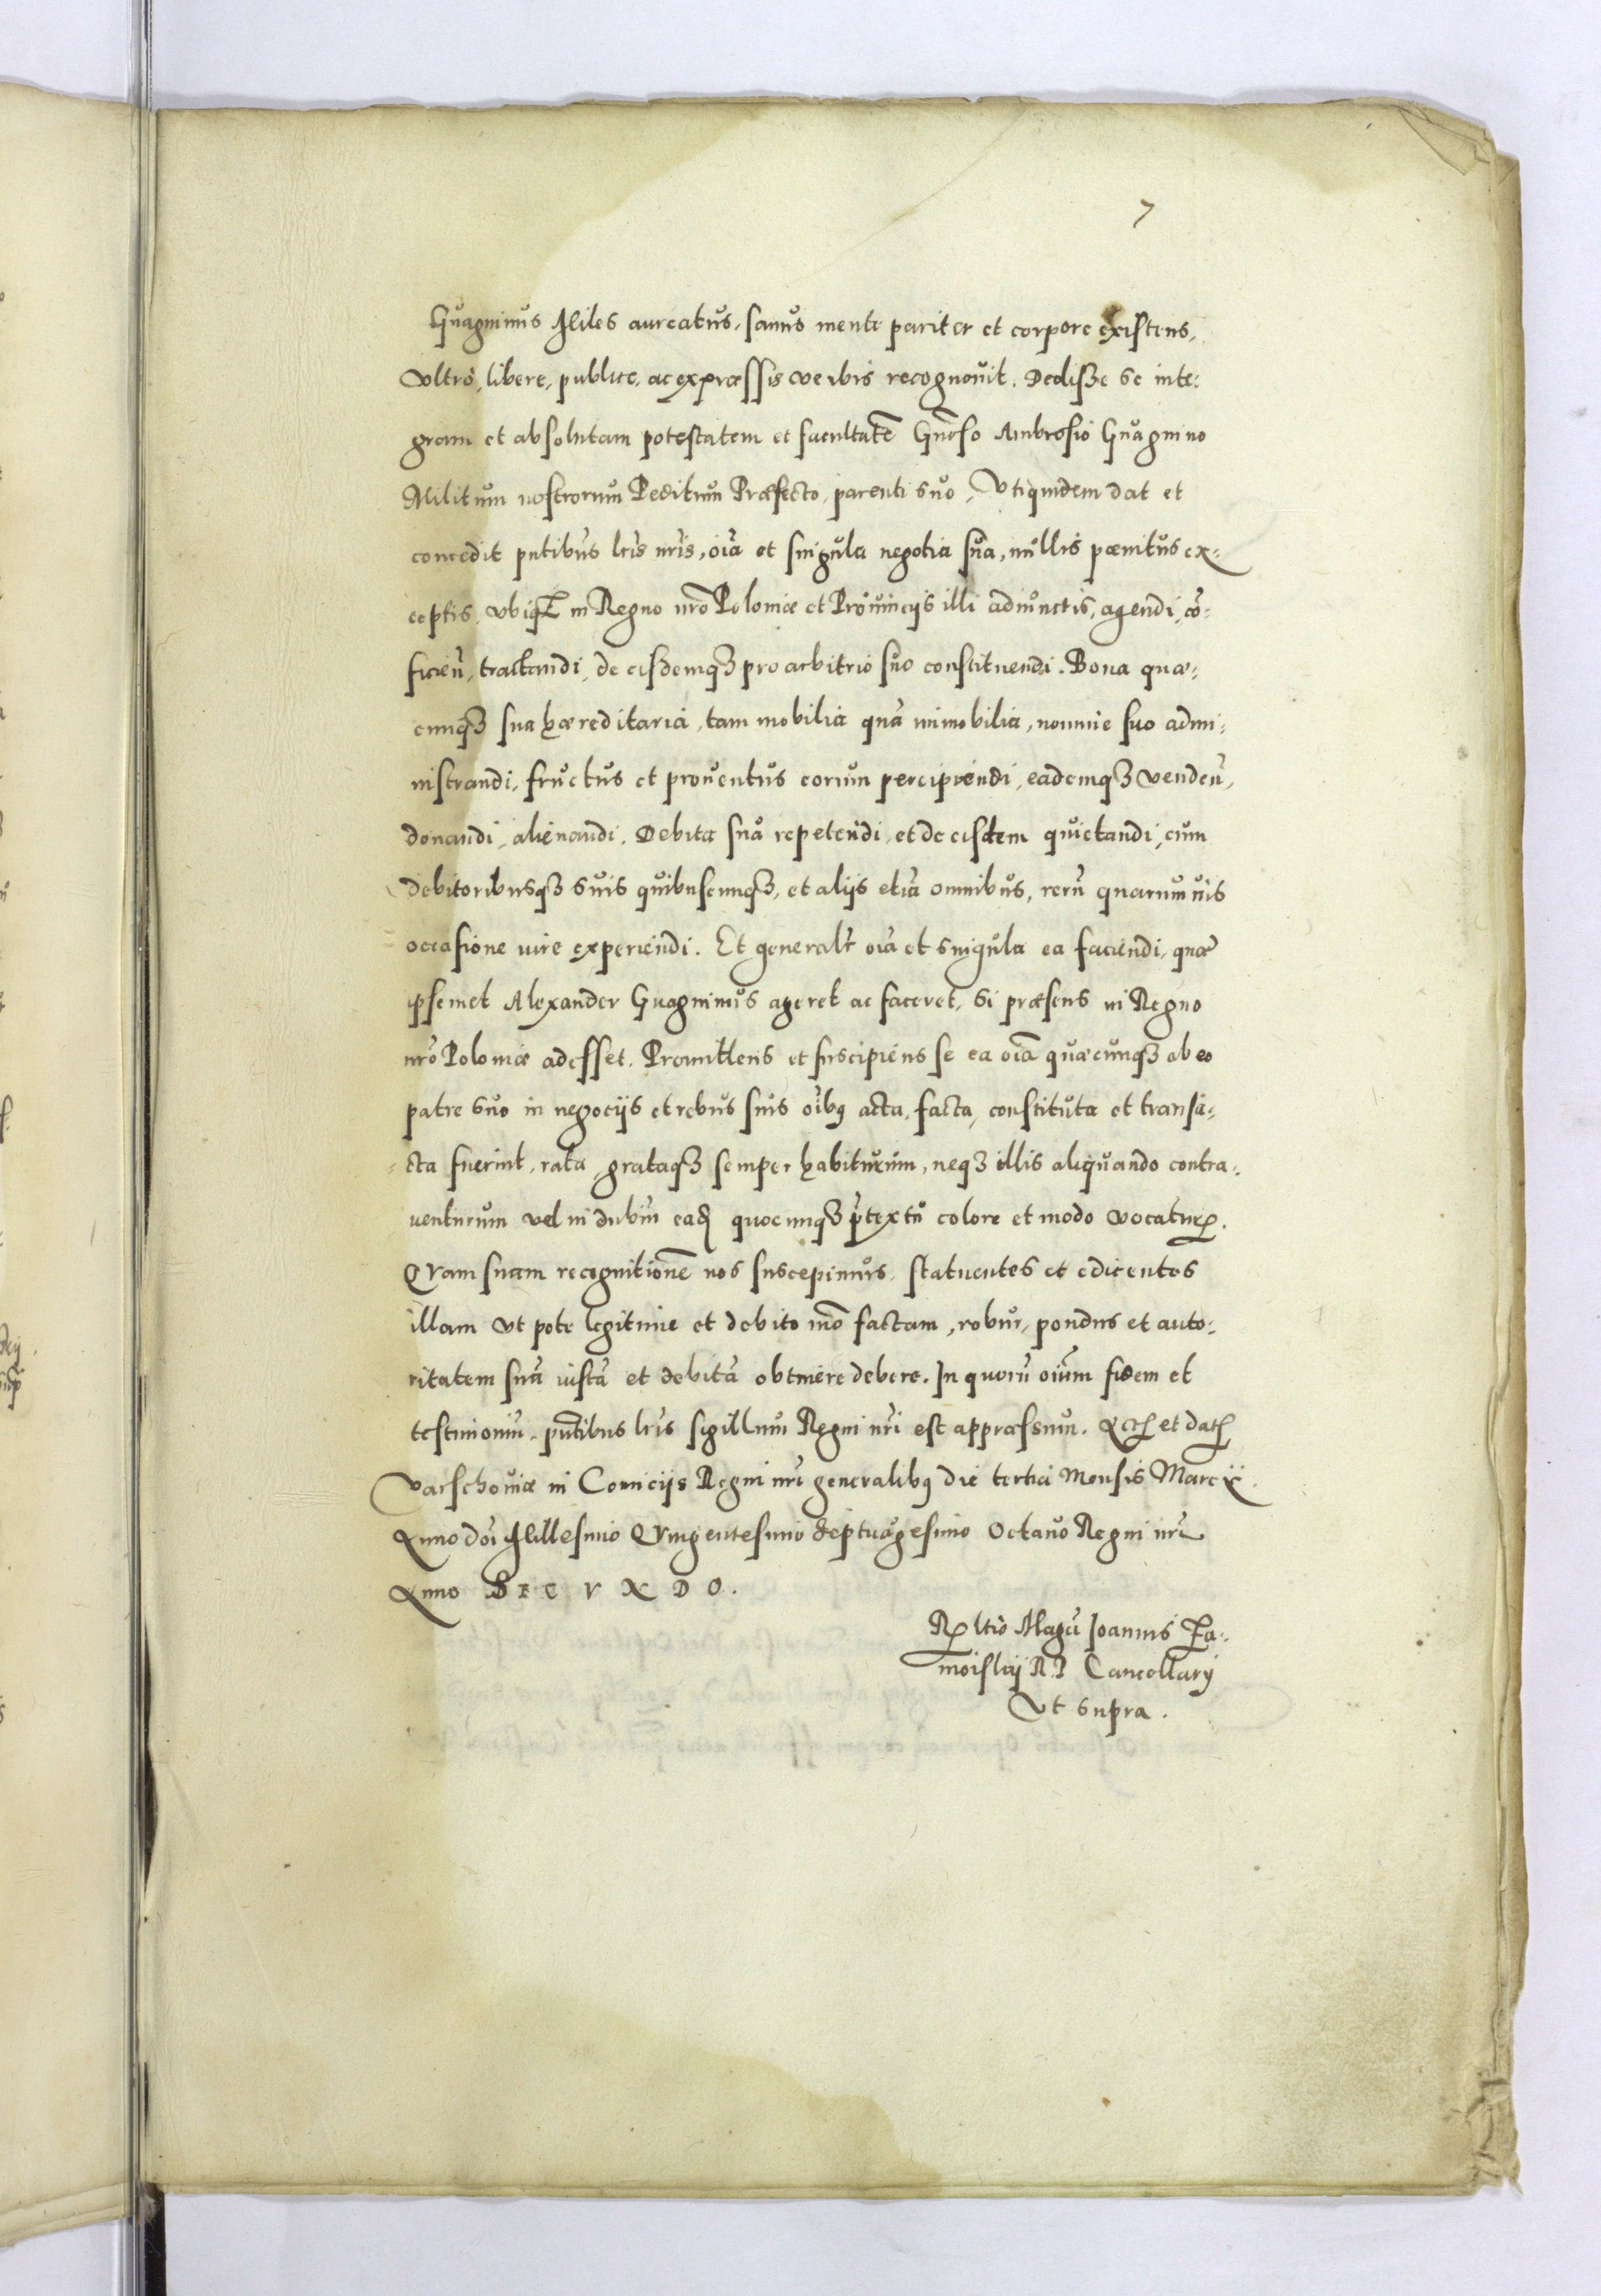 7
Guagninus Miles aureatus, sanus mente pariter et corpore existens,
vltro, libere, publice, ac expræssis verbis recognouit. Dedisse se inte:
gram et absolutam potestatem et facultatē Gnōso Ambrosio Guagnino
Militum nostrorum Peditum Præfecto, parenti suo, Vtiquidem dat et
concedit pntibus lris nris, oīa et singula negotia sua, nullis pænitus ex:
ceptis, vbiqȝ in Regno nrō Poloniæ et Prouinciis illi adiunctis, agendi, cō:
ficien̄, tractandi, de eisdemqȝ pro arbitrio suo constituendi. Bona quæ:
cunqȝ sua hæreditaria, tam mobilia quā immobilia, nomine suo admi:
nistrandi, fructus et prouentus eorum percipiendi, eademqȝ venden̄,
donandi, alienandi. Debita sua repetendi, et de eisdem quietandi, cum
debitoribusqȝ suis quibuscunqȝ, et alijs etiā omnibus, rerū quarumuis
occasione iure experiendi. Et generalr oīa et singula ea faciendi, quæ
ipsemet Alexander Guagninus ageret ac faceret, si præsens in Regno
nrō Poloniæ adesset. Promittens et suscipiens se ea oīa quæcunqȝ ab eo
patre suo in negocijs et rebus suis oībꝯ acta, facta, constituta et transa:
cta fuerint, rata, grataqȝ semper habiturum, neqȝ illis aliquando contra:
uenturum vel in dubiū eaꝺ quocunqȝ prtextu colore et modo vocaturꝝ.
Qvam suam recognitionē nos suscepimus, statuentes et edicentes
illam vt pote legitime et debito mō factam, robur, pondus et auto:
ritatem suā iustā et debitā obtinere debere. In quorū oium fidem et
testimoniū, pntibus lris sigillum Regni nri est appræssum. Actꝝ et datꝝ
Varschouiæ in Comicijs Regni nri generalibꝯ die tertia Mensis Marcij.
Anno doī Millesimo Qvingentesimo Septuagesimo Octauo Regni nri
Anno SECVNDO.
Rltio Magci Joannis Za:
moiskij R. P. Cancellarij
Vt supra.